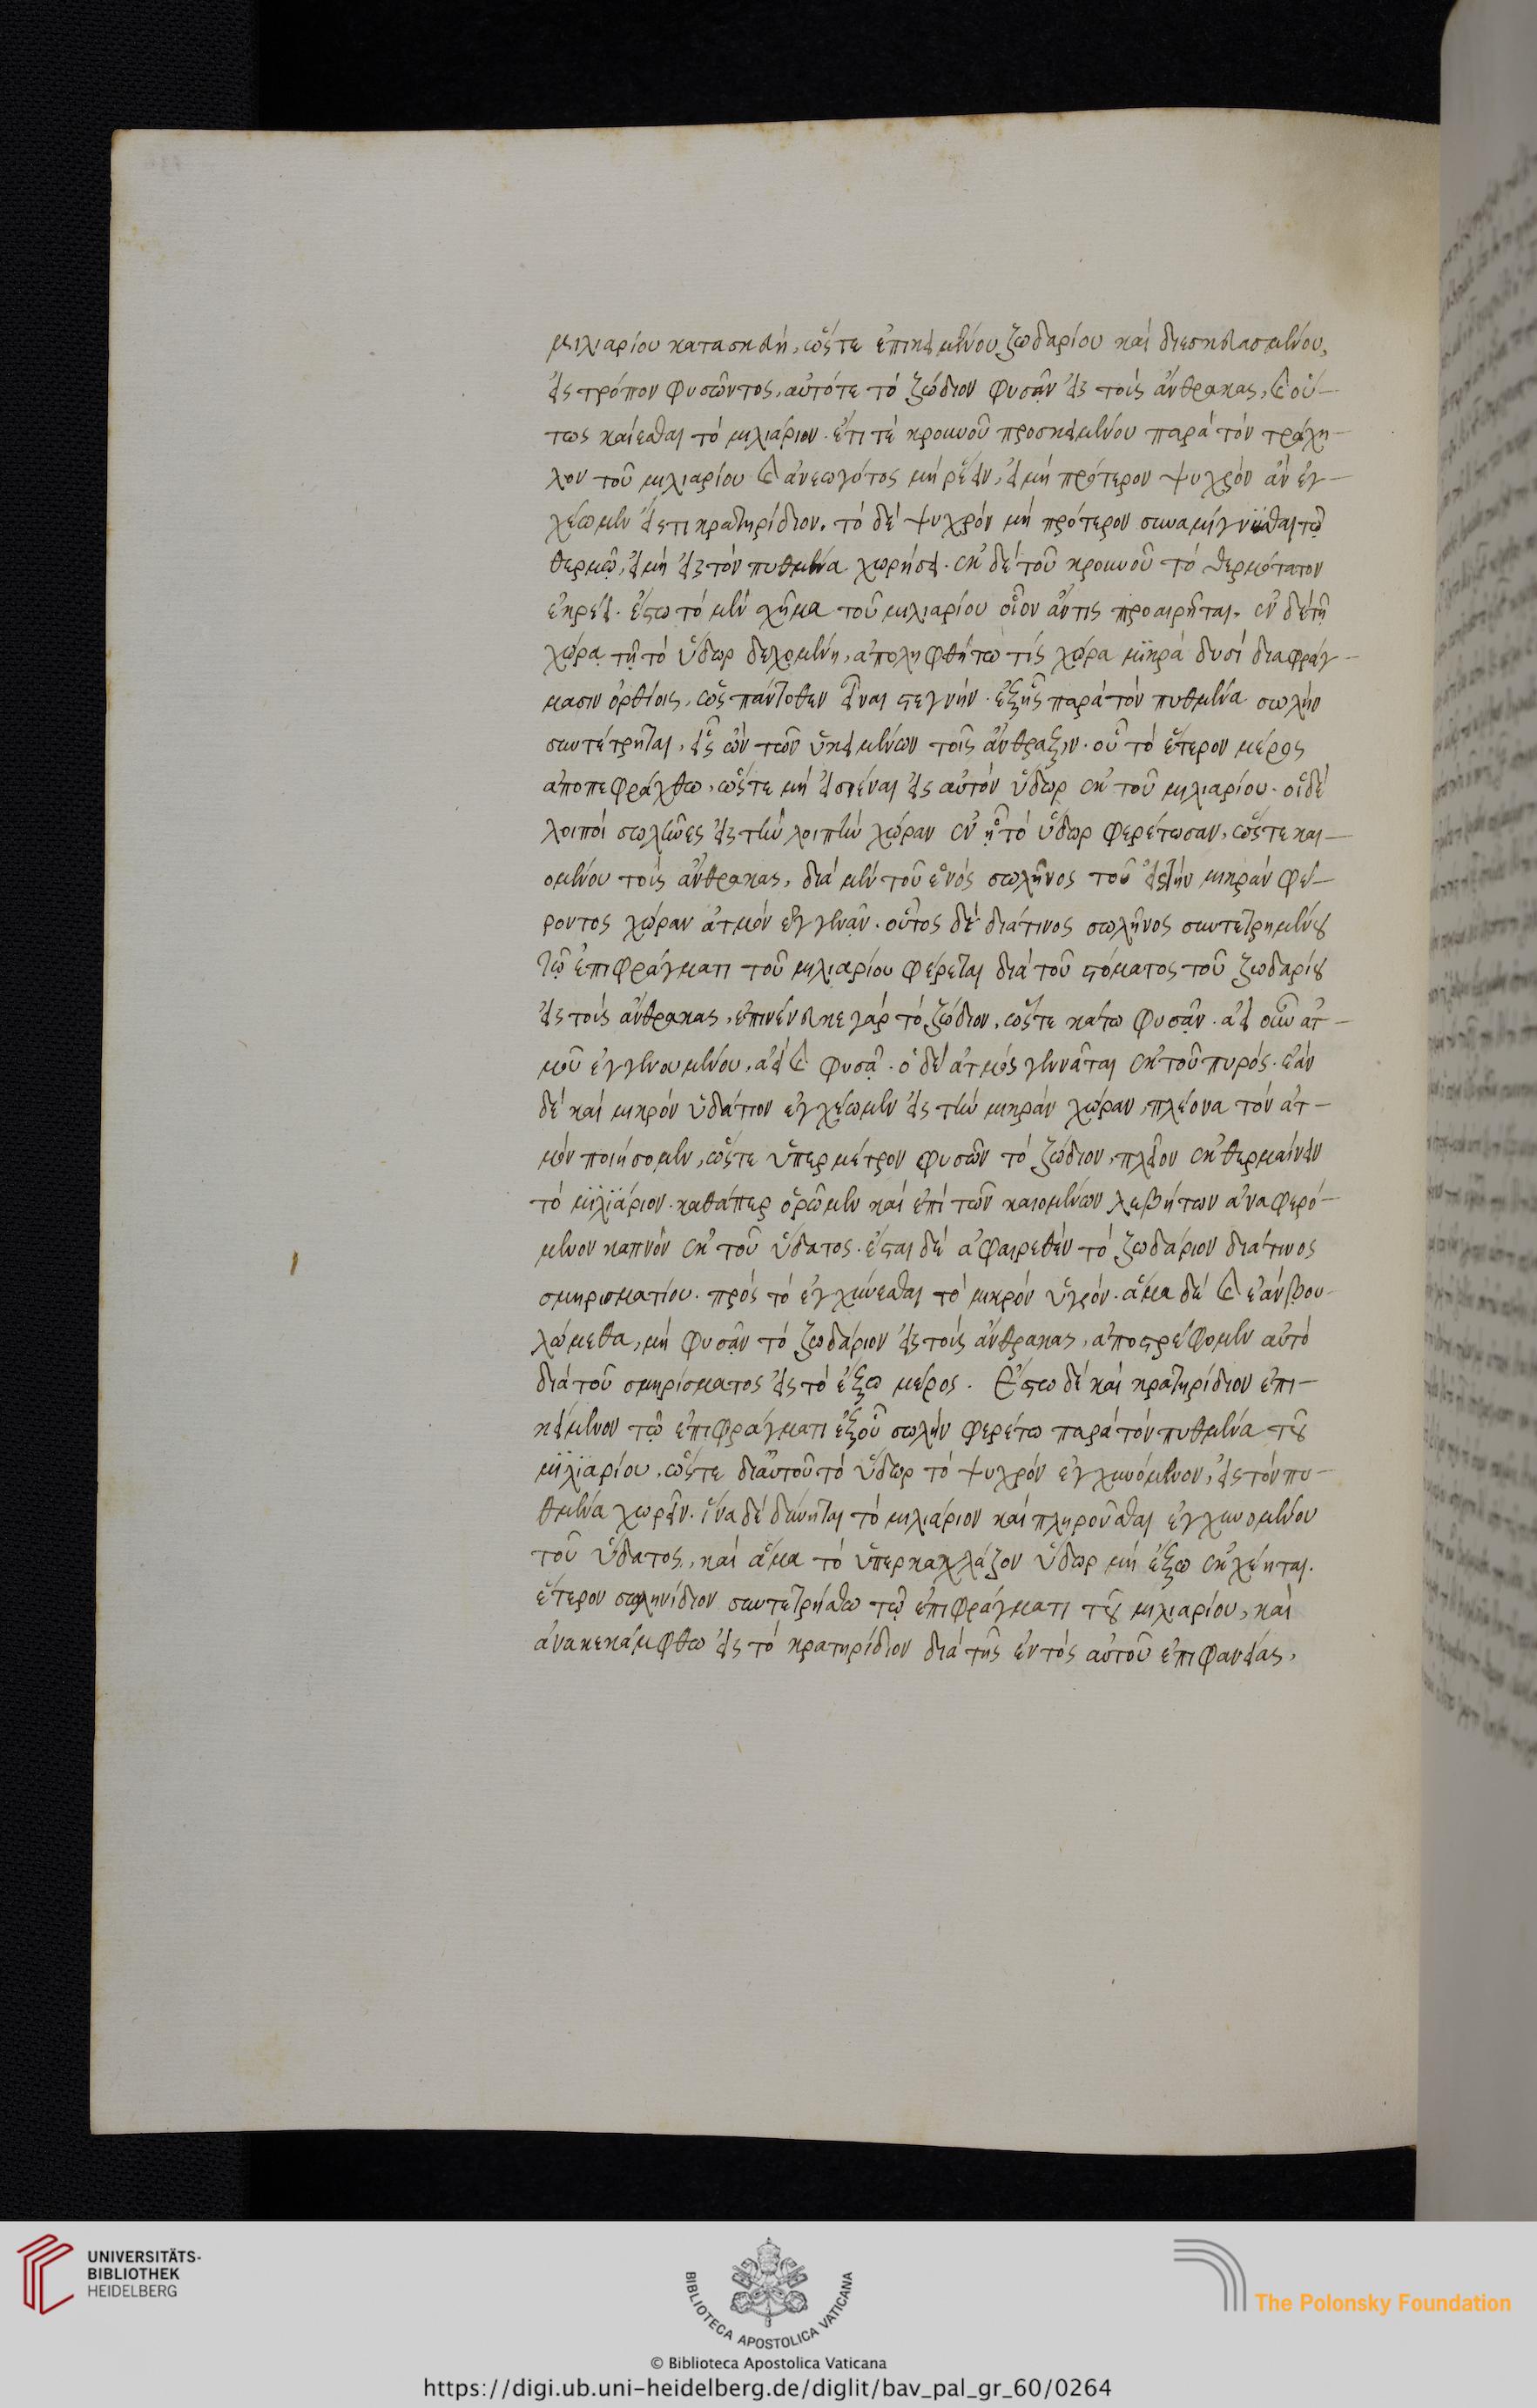 μιλιαρίου κατασκευή, ὥστε ἐπικειμένου ζωδαρίου καὶ διεσκευασμένου,
εἰς τρόπον φυσῶντος, αὐτότε τὸ ζώδιον φυσᾶν εἰς τοὺς ἄνθρακας, καὶ οὕ-
τως καίεσθαι τὸ μιλιάριον. ἔτι τὲ κρουνοῦ προσκειμένου παρὰ τὸν τράχη-
λον τοῦ μιλιαρίου καὶ ἀνεωγότος μὴ ῥεῖν, εἰ μὴ πρότερον ψυχρὸν ἂν ἐγ-
χέωμεν εἴς τι κρατηρίδιον. τὸ δὲ ψυχρὸν μὴ πρότερον συναμίγνυσθαι τῷ
θερμῷ, εἰ μὴ εἰς τὸν πυθμένα χωρήσει. ἐκ δὲ τοῦ κρουνοῦ τὸ θερμότατον
ἐκρέει. ἔστω τὸ μὲν σχῆμα τοῦ μιλιαρίου οἷον ἄν τις προαιρῆται. ἐν δὲ τῇ
χώρᾳ τῇ τὸ ὕδωρ δεχομένῃ, ἀποληφθήτω τὶς χώρα μικρὰ δυσὶ διαφράγ-
μασιν ὀρθίοις, ὡς πάντοθεν εἶναι στεγνήν. ἑξῆς παρὰ τὸν πυθμένα σωλὴν
συντέτρηται, εἷς ὢν τῶν ὑκειμένων τοῖς ἄνθραξιν. οὗ τὸ ἕτερον μέρος
ἀποπεφράχθω, ὥστε μὴ εἰσιέναι εἰς αὐτὸν ὕδωρ ἐκ τοῦ μιλιαρίου. οἱ δὲ
λοιποὶ σωλῆνες εἰς τὴν λοιπὴν χώραν ἐν ᾗ τὸ ὕδωρ φερέτωσαν, ὥστε και-
ομένου τοὺς ἄνθρακας, διὰ μὲν τοῦ ἑνὸς σωλῆνος τοῦ εἰς τὴν μικρὰν φέ-
ροντος χώραν ἀτμὸν ἐγγενᾶν. οὗτος δὲ διά τινος σωλῆνος συντετρημένου
τῷ ἐπιφράγματι τοῦ μιλιαρίου φέρεται διὰ τοῦ στόματος τοῦ ζωδαρίου
εἰς τοὺς ἄνθρακας, ἐπινένευκε γὰρ τὸ ζώδιον, ὥστε κάτω φυσᾶν. ἀεὶ οὖν ἀτ-
μοῦ ἐγγενουμένου, ἀεὶ καὶ φυσᾷ. ὁ δὲ ἀτμὸς γεννᾶται ἐκ τοῦ πυρός. ἐὰν
δὲ καὶ μικρὸν ὑδάτιον ἐγχέωμεν εἰς τὴν μικρὰν χώραν, πλείονα τὸν ἀτ-
μὸν ποιήσομεν, ὥστε ὑπερμέτρον φυσῶν τὸ ζώδιον, πλεῖον ἐκθερμαίνειν
τὸ μιλιάριον. καθάπερ ὁρῶμεν καὶ ἐπὶ τῶν καιομένων λεβήτων ἀναφερό-
μενον καπνὸν ἐκ τοῦ ὕδατος. ἔσται δὲ ἀφαιρεθὲν τὸ ζωδάριον διά τινος
σμηρισματίου. πρὸς τὸ ἐγχύνεσθαι τὸ μικρὸν ὑγρόν. ἅμα δὲ καὶ ἐὰν βου-
λώμεθα, μὴ φυσᾶν τὸ ζωδάριον εἰς τοὺς ἄνθρακας, ἀποστρέφομεν αὐτὸ
διὰ τοῦ σμηρίσματος εἰς τὸ ἔξω μέρος. Ἔστω δὲ καὶ κρατηρίδιον ἐπι-
κείμενον τῷ ἐπιφράγματι ἐξ οὗ σωλὴν φερέτω παρὰ τὸν πυθμένα τοῦ
μιλιαρίου, ὥστε δι' αὐτοῦ τὸ ὕδωρ τὸ ψυχρὸν ἐγχυνόμενον, εἰς τὸν πυ-
θμένα χωρεῖν. ἵνα δὲ δύνηται τὸ μιλιάριον καὶ πληροῦσθαι ἐγχυνομένου
τοῦ ὕδατος, καὶ ἅμα τὸ ὑπερκαχλάζον ὕδωρ μὴ ἔξω ἐκχέηται.
ἕτερον σωληνίδιον συντετρήσθω τῷ ἐπιφράγματι τοῦ μιλιαρίου, καὶ
ἀνακεκάμφθω εἰς τὸ κρατηρίδιον διὰ τῆς ἐντὸς αὐτοῦ ἐπιφανείας,
UNIVERSITÄTS-
BIBLIOTHEK
HEIDELBERG
BIBLIOTECA APOSTOLICA VATICANA
The Polonsky Foundation
© Biblioteca Apostolica Vaticana
https://digi.ub.uni-heidelberg.de/diglit/bav_pal_gr_60/0264